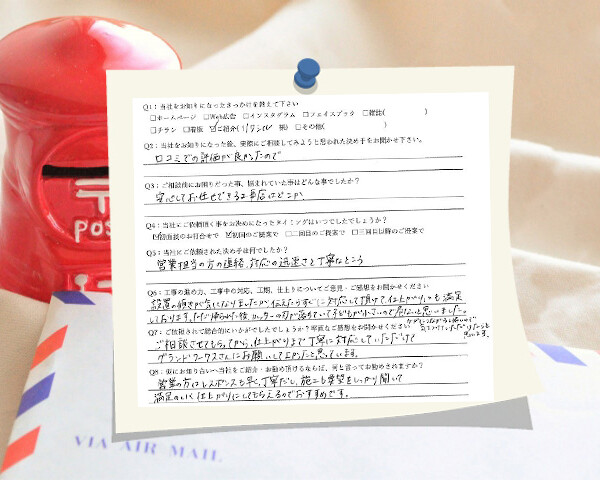 Q1：当社をお知りになったきっかけを教えて下さい
□ホームページ □Web広告 □インスタグラム □フェイスブック □雑誌( )
□チラシ □看板 ☑ご紹介( 様) □その他( )
Q2：当社をお知りになった後、実際にご相談してみようと思われた決め手をお聞かせ下さい。
口コミでの評価が良かったので
Q3：ご相談前にお困りだった事、悩まれていた事はどんな事でしたか？
安心してお任せできる工事店はどこか
Q4：当社にご依頼頂く事をお決めになったタイミングはいつでしたでしょうか？
☑初面談のお打合せで ☑初回のご提案で □二回目のご提案で □三回目以降のご提案で
Q5：当社にご依頼された決め手は何でしたか？
営業担当の方の連絡、対応の迅速さと丁寧なところ
Q6：工事の進め方、工事中の対応、工期、仕上りについてご意見・ご感想をお聞かせください
設置の傾きが気になりましたが伝えたらすぐに対応して頂けて仕上がりにも満足
しております。ただ帰られた後、カッターの刃が落ちていて子どもが小さいので危ないと思いました。
Q7：ご依頼されて総合的にいかがでしたでしょうか？率直なご感想をお聞かせください
ご相談させてもらってから、仕上がりまで丁寧に対応していただけて
グランドワークスさんにお願いして良かったと思っています。
思います。
Q8：仮にお知り合いへ当社をご紹介・お勧め頂けるならば、何と言ってお勧めされますか？
営業の方はレスポンスも早く丁寧だし、施工も要望をしっかり聞いて
満足のいく仕上がりにしてもらえるのでおすすめです。
POS
VIA AIR MAIL